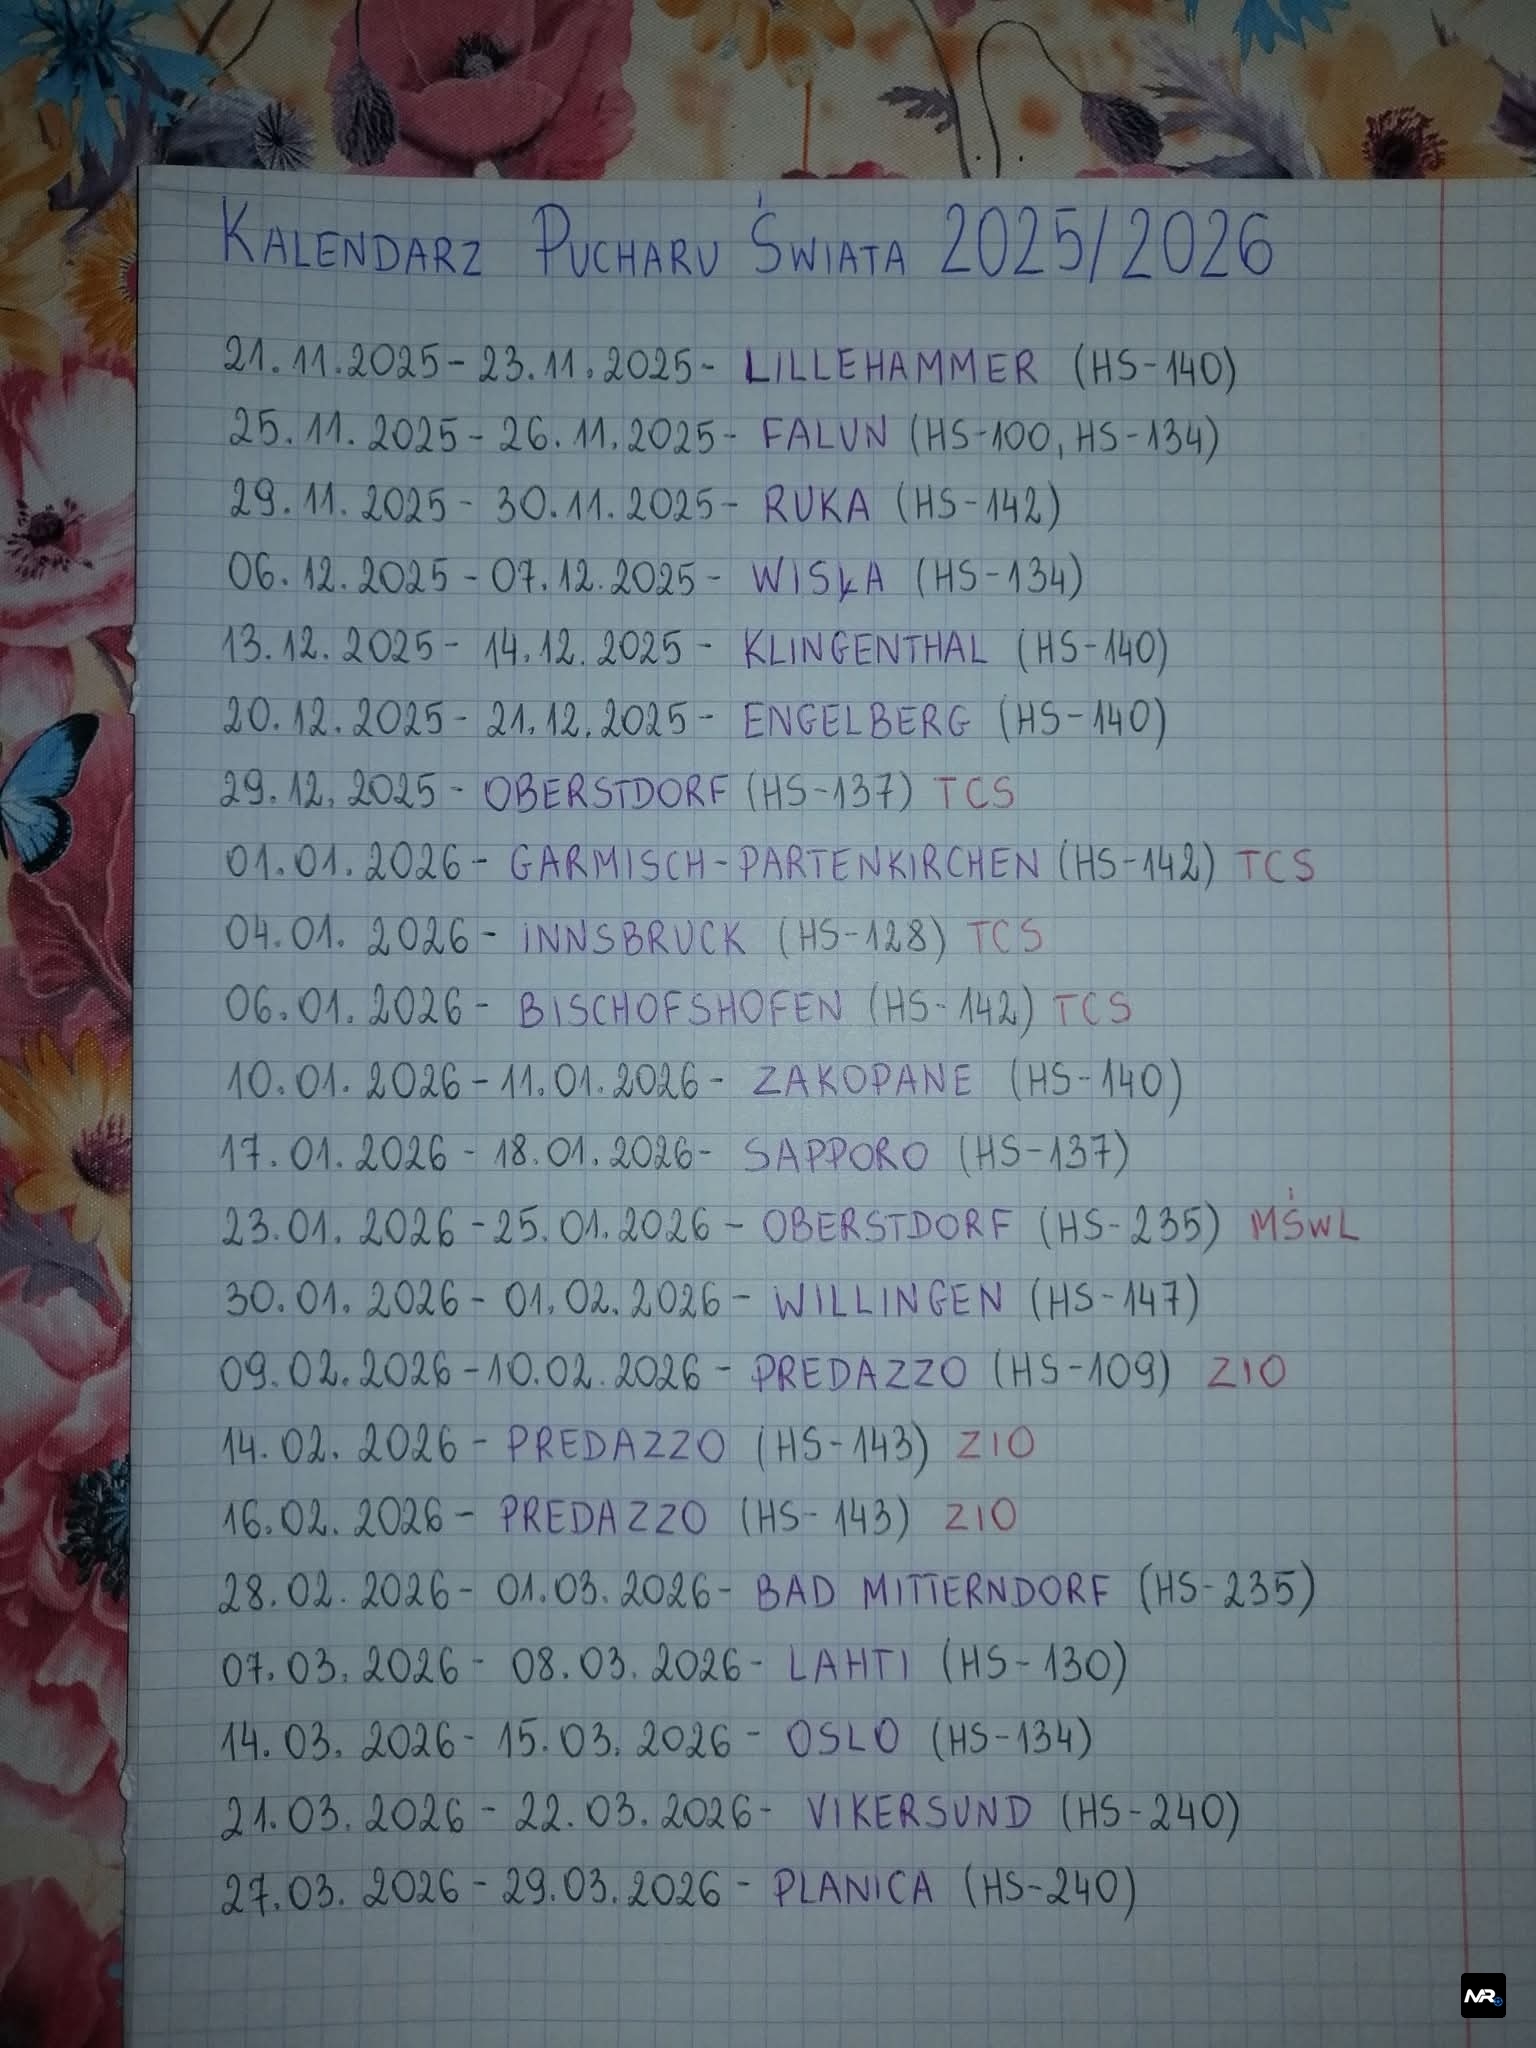 Kalendarz Pucharu Świata 2025/2026
21.11.2025- 23.11.2025- LILLEHAMMER (HS-140)
25.11.2025- 26.11.2025- FALUN (HS-100, HS-134)
29.11.2025 - 30.11.2025- RUKA (HS-142)
06.12.2025 - 07.12.2025- WISŁA (HS-134)
13.12.2025- 14.12.2025 - KLINGENTHAL (HS-140)
20.12.2025- 21.12.2025- ENGELBERG (HS-140)
29.12.2025- OBERSTDORF (HS-137) TCS
01.01.2026- GARMISCH-PARTENKIRCHEN (HS-142) TCS
04.01.2026- INNSBRUCK (HS-128) TCS
06.01.2026- BISCHOFSHOFEN (HS-142) TCS
10.01.2026-11.01.2026- ZAKOPANE (HS-140)
17.01.2026 - 18.01.2026- SAPPORO (HS-137)
23.01.2026 -25.01.2026 - OBERSTDORF (HS-235) MŚWL
30.01.2026- 01.02.2026- WILLINGEN (HS-147)
09.02.2026-10.02.2026- PREDAZZO (HS-109) ZIO
14.02.2026- PREDAZZO (HS-143) ZIO
16.02.2026- PREDAZZO (HS-143) ZIO
28.02.2026- 01.03.2026- BAD MITTERNDORF (HS-235)
07.03.2026- 08.03.2026- LAHTI (HS-130)
14.03.2026- 15.03.2026- OSLO (HS-134)
21.03.2026 - 22.03.2026- VIKERSUND (HS-240)
27.03.2026 - 29.03.2026 - PLANICA (HS-240)
NR